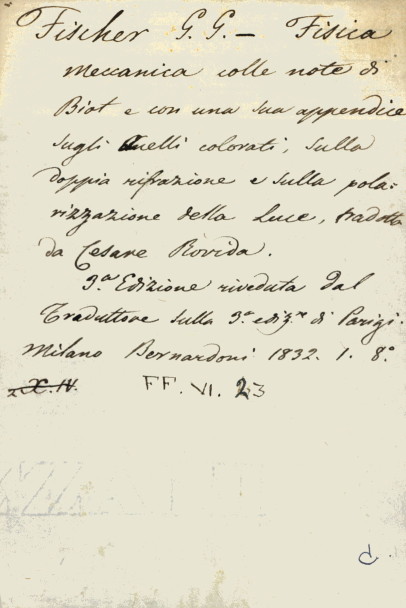 Fischer G. G. — Fisica
meccanica colle note di
Biot e con una sua appendice
sugli Anelli colorati, sulla
doppia rifrazione e sulla pola=
rizzazione della Luce, tradotta
da Cesare Rovida.
3.a Edizione riveduta dal
Traduttore sulla 3.a ediz.e di Parigi.
Milano Bernardoni 1832. 1. 8.°
FF. VI. 23